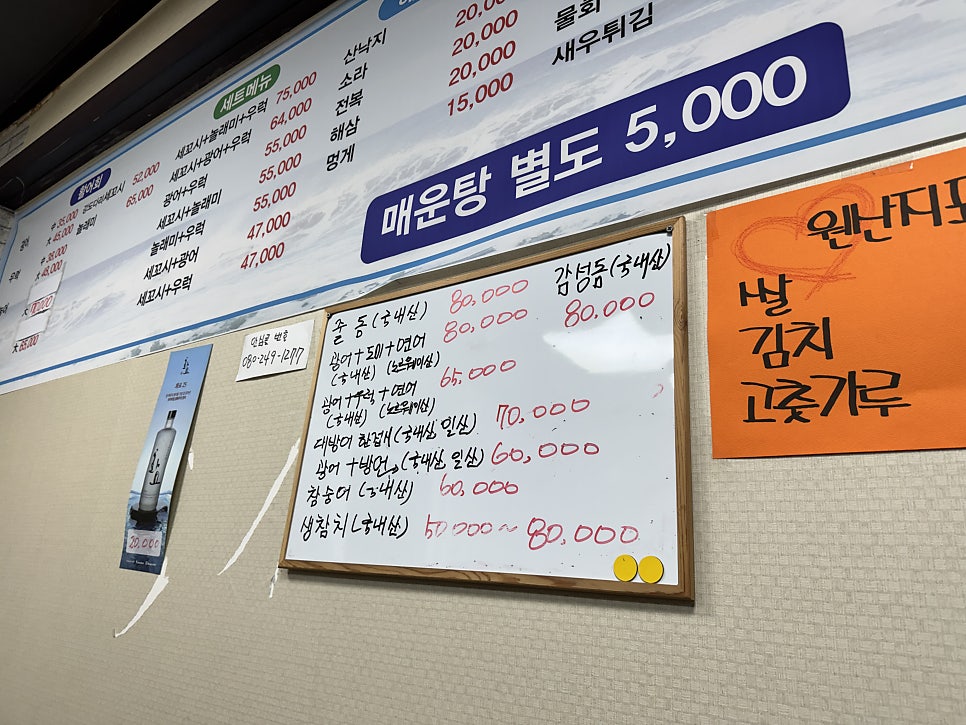 세트메뉴
세꼬시+놀래미+우럭 75,000
세꼬시+광어+우럭 64,000
광어+우럭 55,000
세꼬시+놀래미 55,000
놀래미+우럭 55,000
세꼬시+광어 47,000
세꼬시+우럭 47,000
활어회
中 35,000
大 45,000
中 38,000
大 48,000
大 65,000
52,000
놀래미 65,000
산낙지 20,000
소라 20,000
전복 20,000
해삼 15,000
멍게
물회
새우튀김
매운탕 별도 5,000
줄돔(국내산) 80,000
감성돔(국내산) 80,000
광어+도미+연어 80,000
(국내산) (노르웨이산)
광어+우럭+연어 65,000
(국내산) (노르웨이산)
대방어 한접시(국내산, 일산) 70,000
광어+방어(국내산, 일산) 60,000
참숭어(국내산) 60,000
생참치(국내산) 50,000~80,000
080-249-1277
20,000
원산지표
쌀
김치
고춧가루